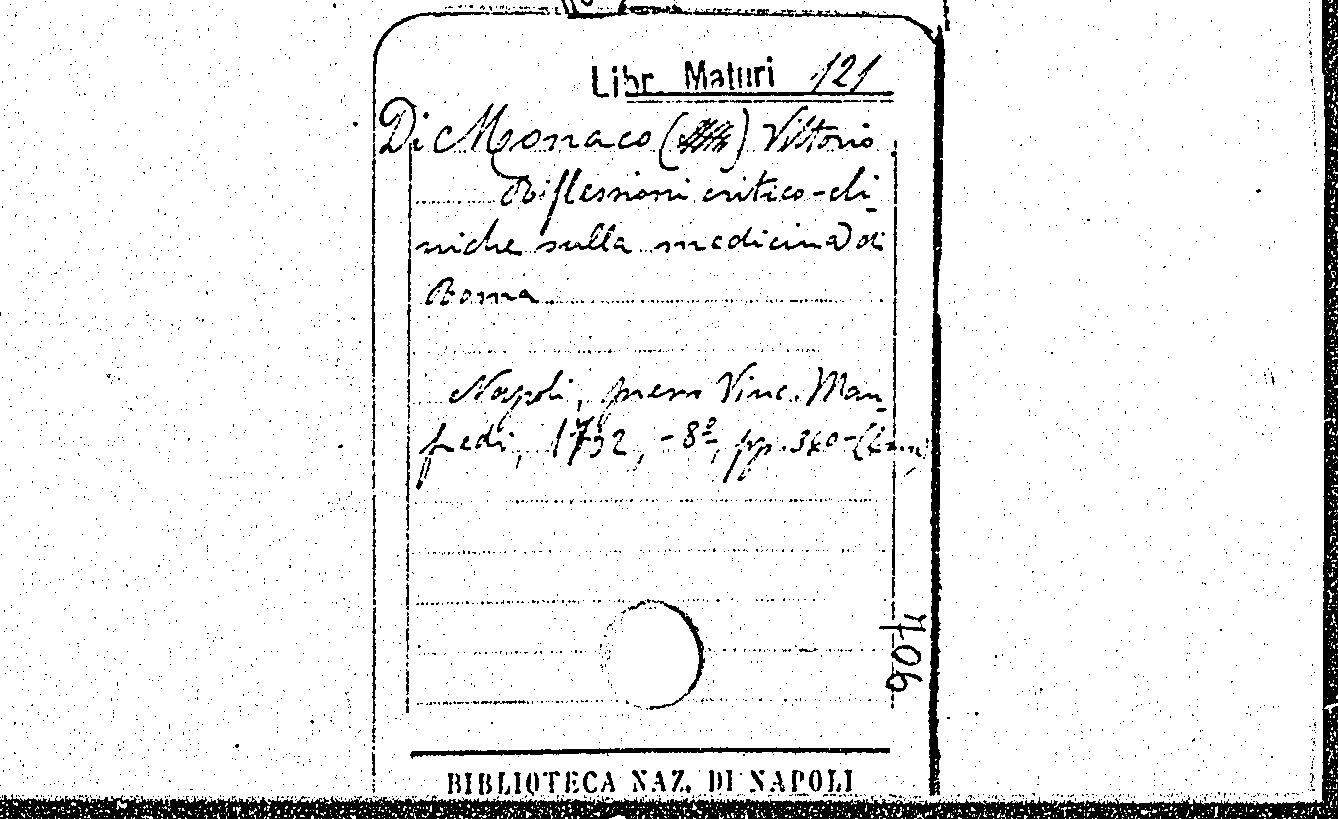 Libr. Maturi 121
Di Monaco () Vittorio
Riflessioni critico-cli-
niche sulla medicina di
Roma
Napoli, presso Vinc. Man-
fredi, 1792, -8º, pp. 340-
BIBLIOTECA NAZ. DI NAPOLI